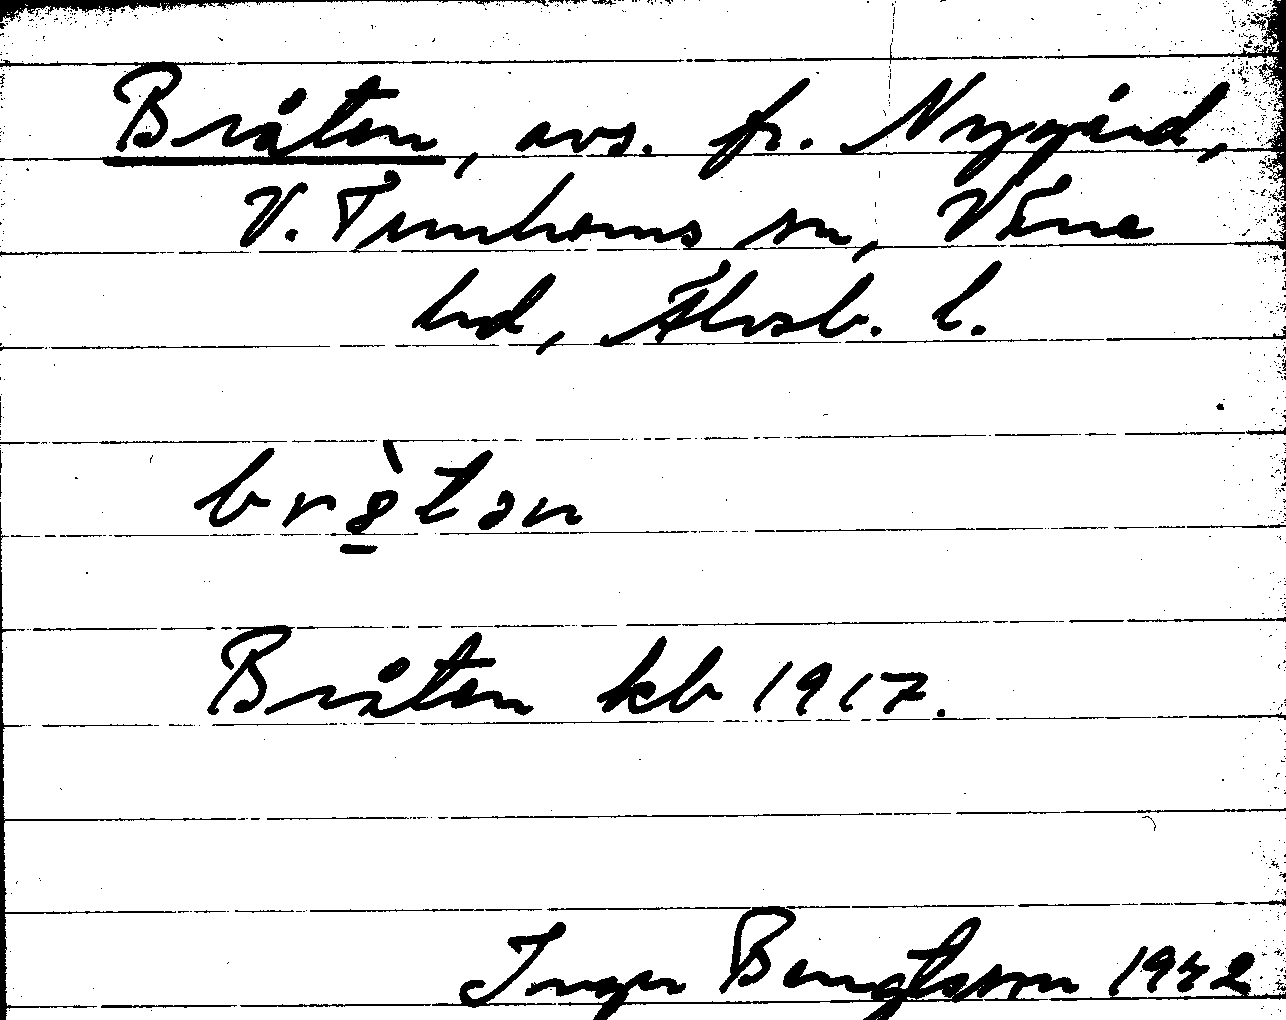 Bråten, avs. fr. Nygård,
V. Tunhems sn, Väne
hd, Älvsb. l.
brå̀tən
Bråten kb 1917.
Inger Bengtsson 1942